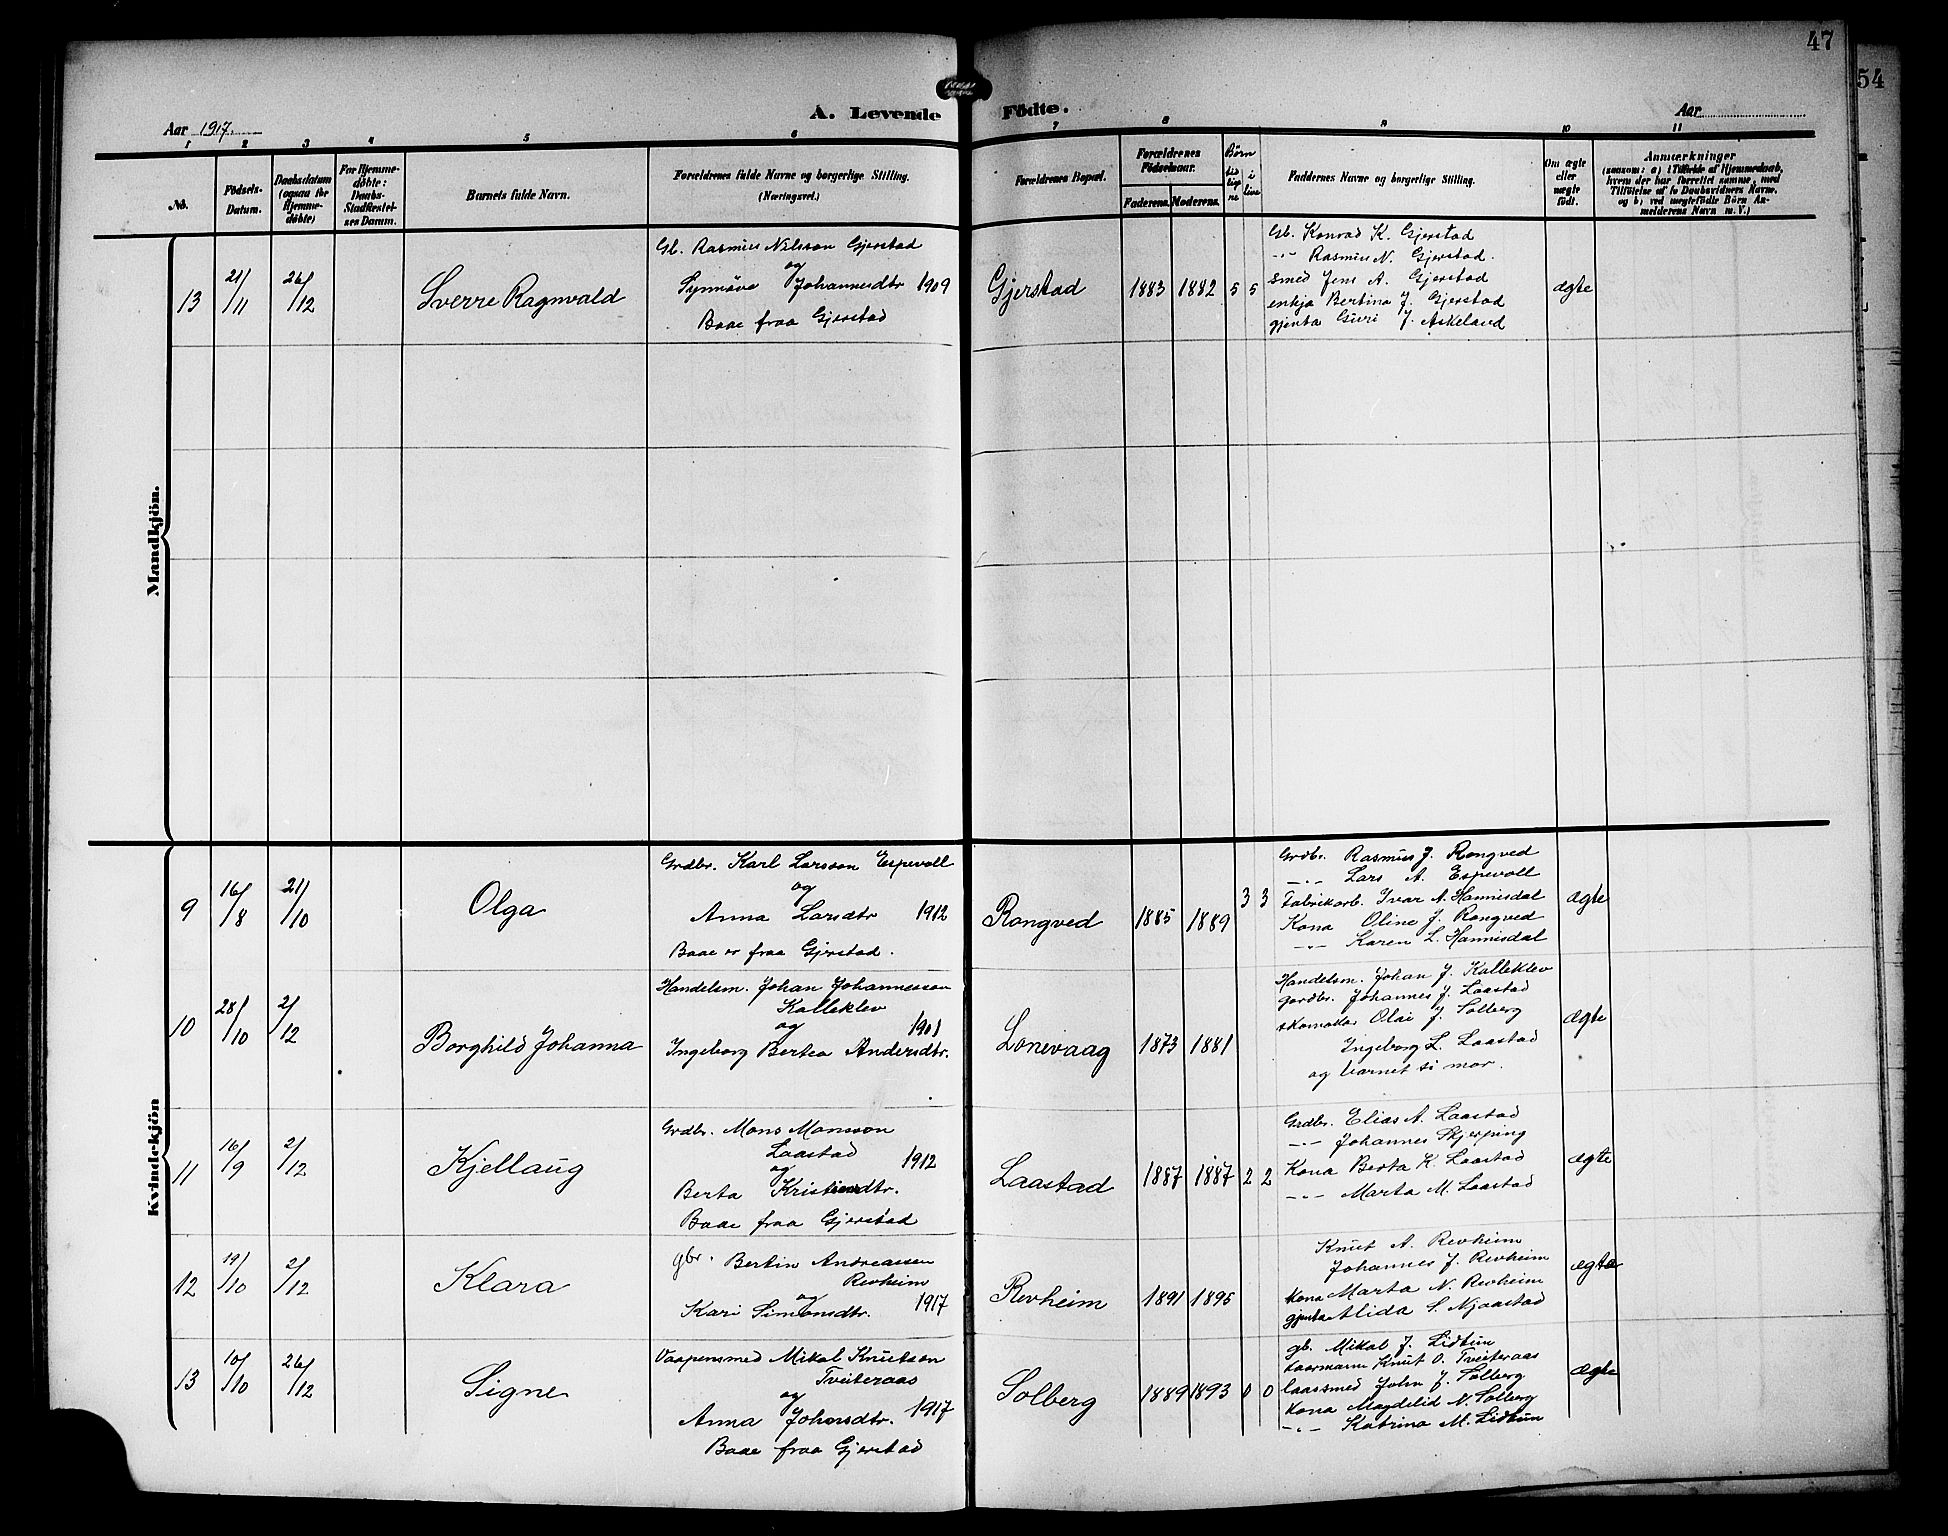 47
54
A. Levende Födte.
Aar 1917.
Aar
1 2 3 4 5 6 7 8 9 10 11
No.
Födsels-Datum.
Daabsdatum (ogsaa for Hjemme-döbte)
For Hjemme-döbte: Daabs-Stadfæstel-ses Datum.
Barnets fulde Navn.
Forældrenes fulde Navne og borgerlige Stilling. (Næringsvei.)
Forældrenes Bopæl.
Forældrenes Födselsaar.
Faderens. Moderens.
Börn i live
Faddernes Navne og borgerlige Stilling.
Om ægte eller uægte födt.
Anmærkninger
(saasom: a) i Tilfælde af Hjemmedaab, hvem der har forrettet samme, med Tilföielse af to Daabsvidners Navne, og b) ved uægtefödte Börn Anmelderens Navn m. V.)
Mandkjön.
13 21/11 26/12 Sverre Ragnvald
Gb. Rasmus Nilsson Gjerstad
og
Synnøve Johannesdtr 1909
Baae fraa Gjerstad
Gjerstad 1883 1882 5 5
Gb. Konrad K. Gjerstad
-"- Rasmus N. Gjerstad.
smed Jens A. Gjerstad
enkja Bertina J. Gjerstad
gjenta Guri J. Askeland
ægte
Kvindekjön
9 16/8 21/10 Olga
Grdbr. Karl Larsson Espevoll
og
Anna Larsdtr 1912
Baae er fraa Gjerstad.
Rongved 1885 1889 3 3
Grdbr. Rasmus J. Rongved
-"- Lars A. Espevoll
Fabrikarb. Ivar A. Hannisdal
Kona Oline J. Rongved
-"- Karen L. Hannisdal
ægte
10 28/10 2/12 Borghild Johanna
Handelsm. Johan Johannesson
Kalleklev
og 1901
Ingeborg Bertea Andersdtr.
Lonevaag 1873 1881
Handelsm. Johan J. Kalleklev
gardbr. Johannes J. Laastad
skomakar Olai J. Solberg
Ingeborg L. Laastad
og barnet si mor.
ægte
11 16/9 2/12 Kjellaug
Grdbr. Mons Monsson
Laastad
og 1912
Berta Kristensdtr.
Baae fraa Gjerstad
Laastad 1887 1887 2 2
Grdbr. Elias A. Laastad
-"- Johannes Skjerping
Kona Berta K. Laastad
-"- Marta M. Laastad
ægte
12 19/10 2/12 Klara
gbr. Bertin Andreassen
Revheim
og
Kari Simonsdtr. 1917
Revheim 1891 1895
Knut A. Revheim
Johannes J. Revheim
kona Marta N. Revheim
gjenta Alida S. Njaastad
ægte
13 10/10 26/12 Signe
Vaapensmed Mikal Knutson
Tveiteraas
og
Anna Johnsdtr. 1917
Baae fraa Gjerstad
Solberg 1889 1893 0 0
gb. Mikal J. Lidtun
kaarmann Knut O. Tveiteraas
laassmed John J. Solberg
kona Magdelid N. Solberg
-"- Katrina M. Lidtun
ægte